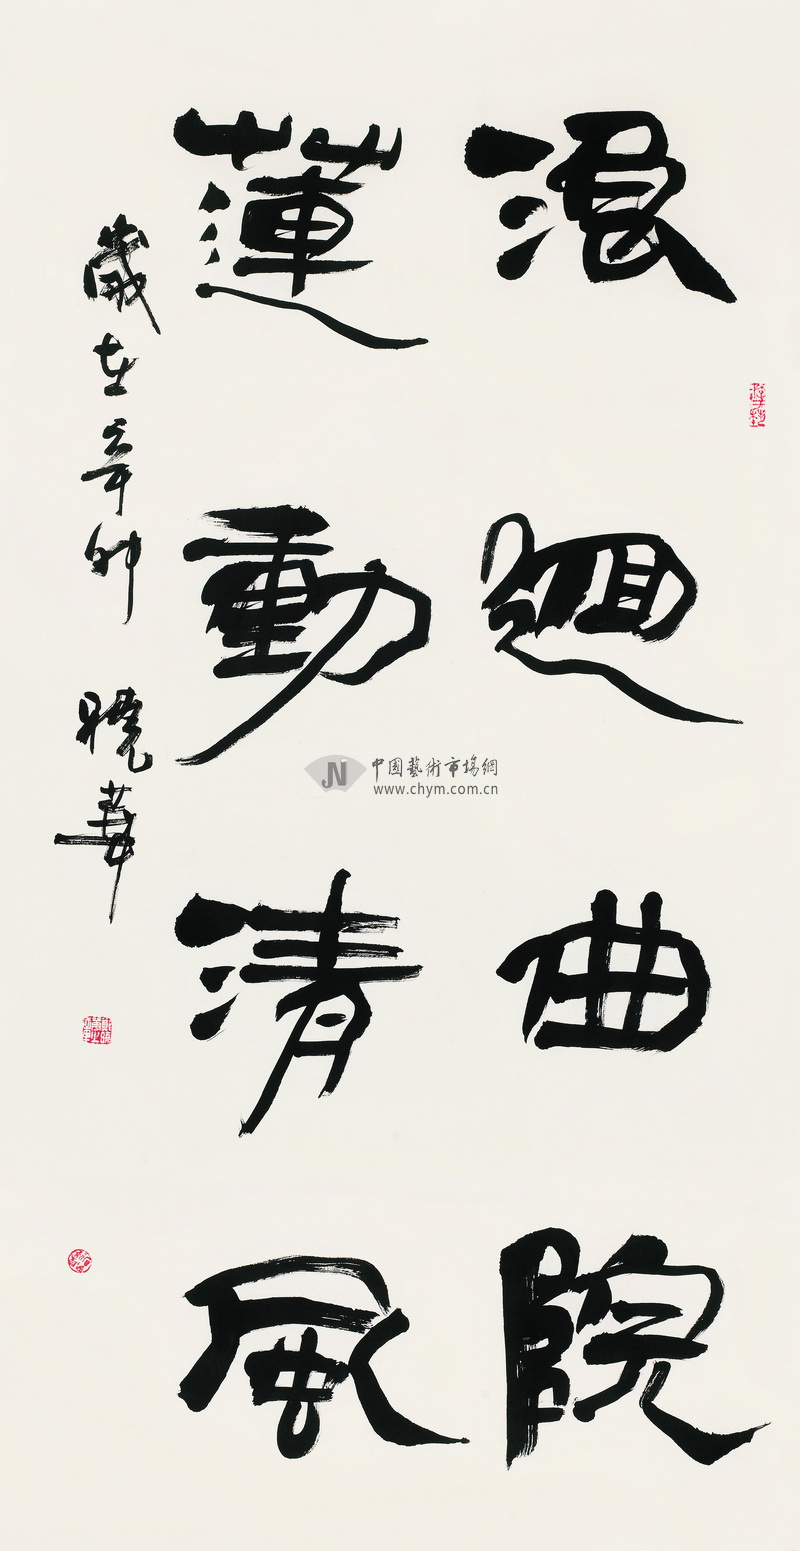 浪迴曲院
蓮動清風
歲在辛卯 曉華
中国藝術市場網
www.chym.com.cn
JN